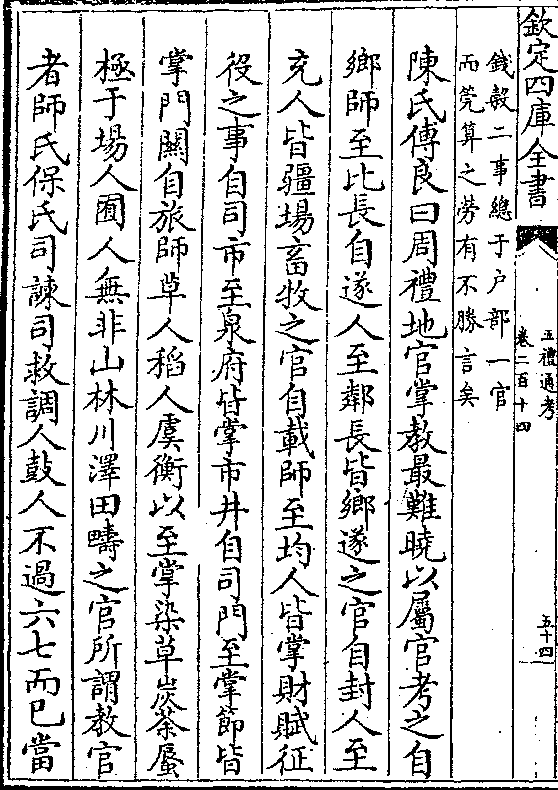 欽定四庫全書
五禮通考
卷二百十四
五十四
錢穀二事總于户部一官
而筦算之勞有不勝言矣
陳氏傅良曰周禮地官掌教最難曉以屬官考之自
鄉師至比長自遂人至鄰長皆鄉遂之官自封人至
充人皆疆場畜牧之官自載師至均人皆掌財賦征
役之事自司市至泉府皆掌市井自司門至掌節皆
掌門關自旅師草人稻人虞衡以至掌染草炭荼蜃
極于場人囿人無非山林川澤田疇之官所謂教官
者師氏保氏司諫司救調人鼓人不過六七而已當